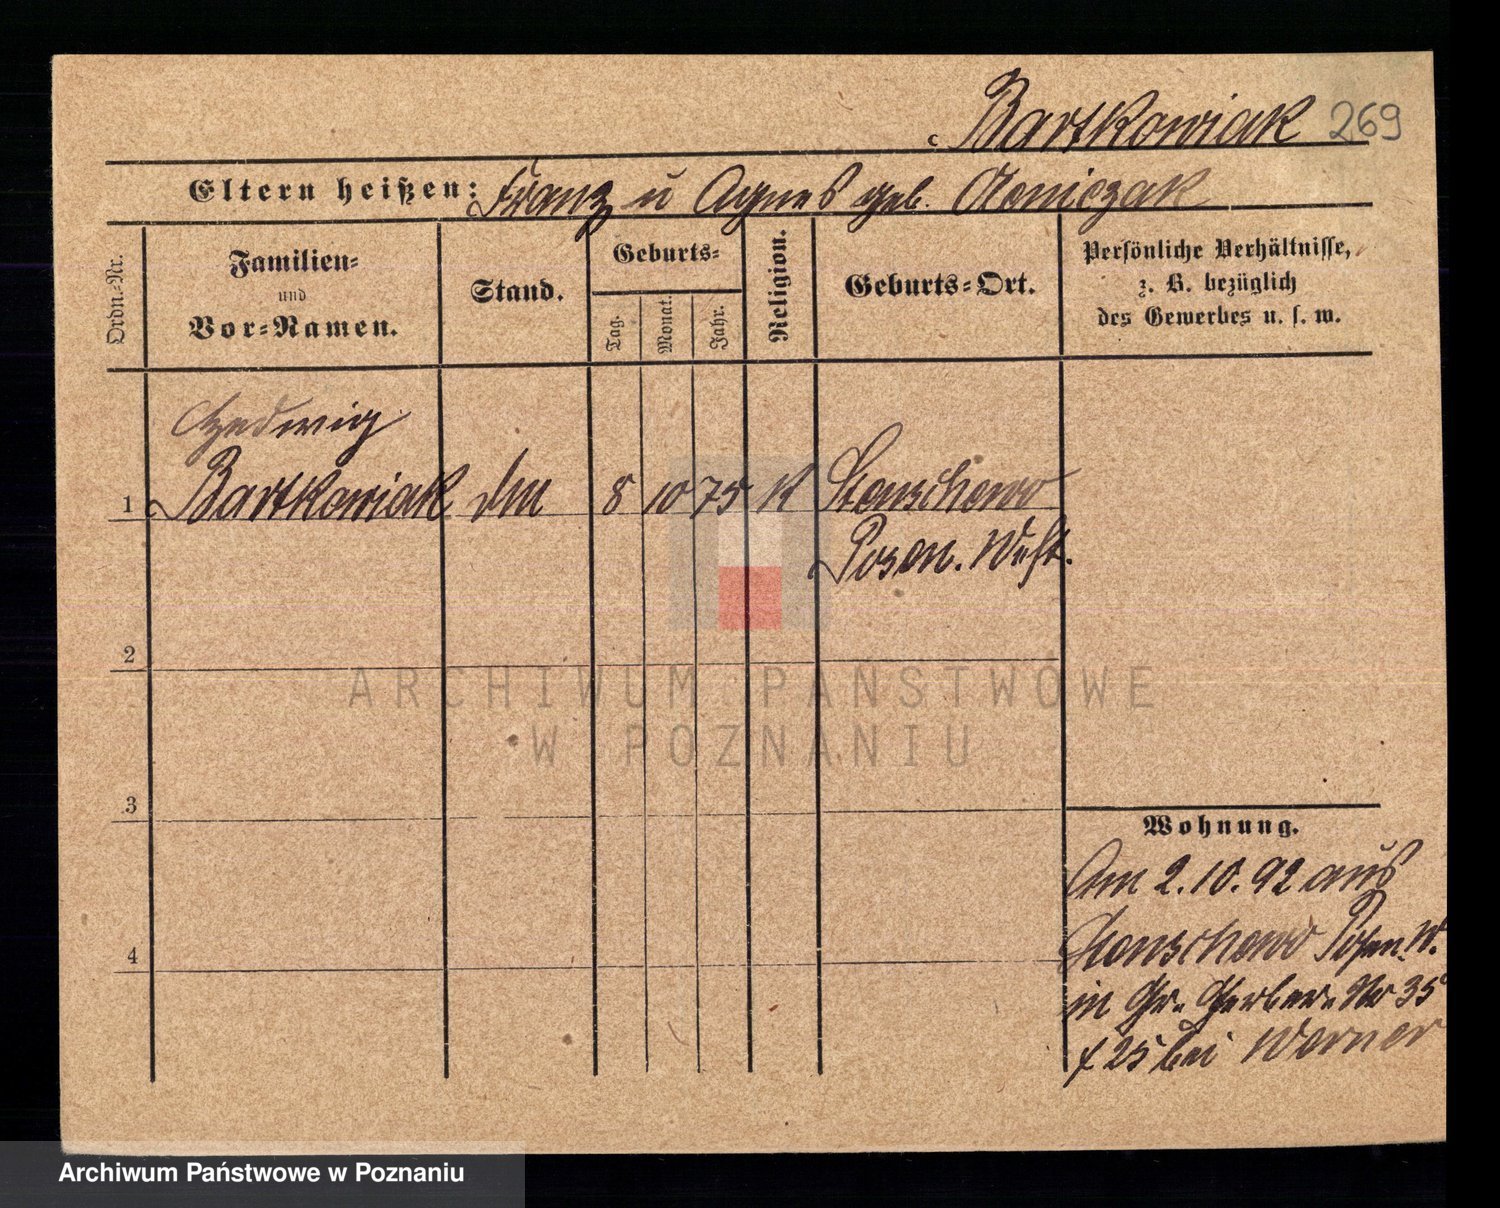 Bartkowiak 269
Eltern heißen: Franz u Agnes geb.
Ordn.-Nr.
Familien-
und
Vor-Namen.
Stand.
Geburts-
Tag.
Monat.
Jahr.
Religion.
Geburts-Ort.
Persönliche Verhältnisse,
z. B. bezüglich
des Gewerbes u. s. w.
Hedwig
1 Bartkowiak 8 10 75 K
Posen. West.
2
ARCHIWUM PAŃSTWOWE
W POZNANIU
3
Wohnung.
Am 2.10.92 aus
Posen. W.
4
in Gr. Gerber. No 35
25 bei Werner
Archiwum Państwowe w Poznaniu